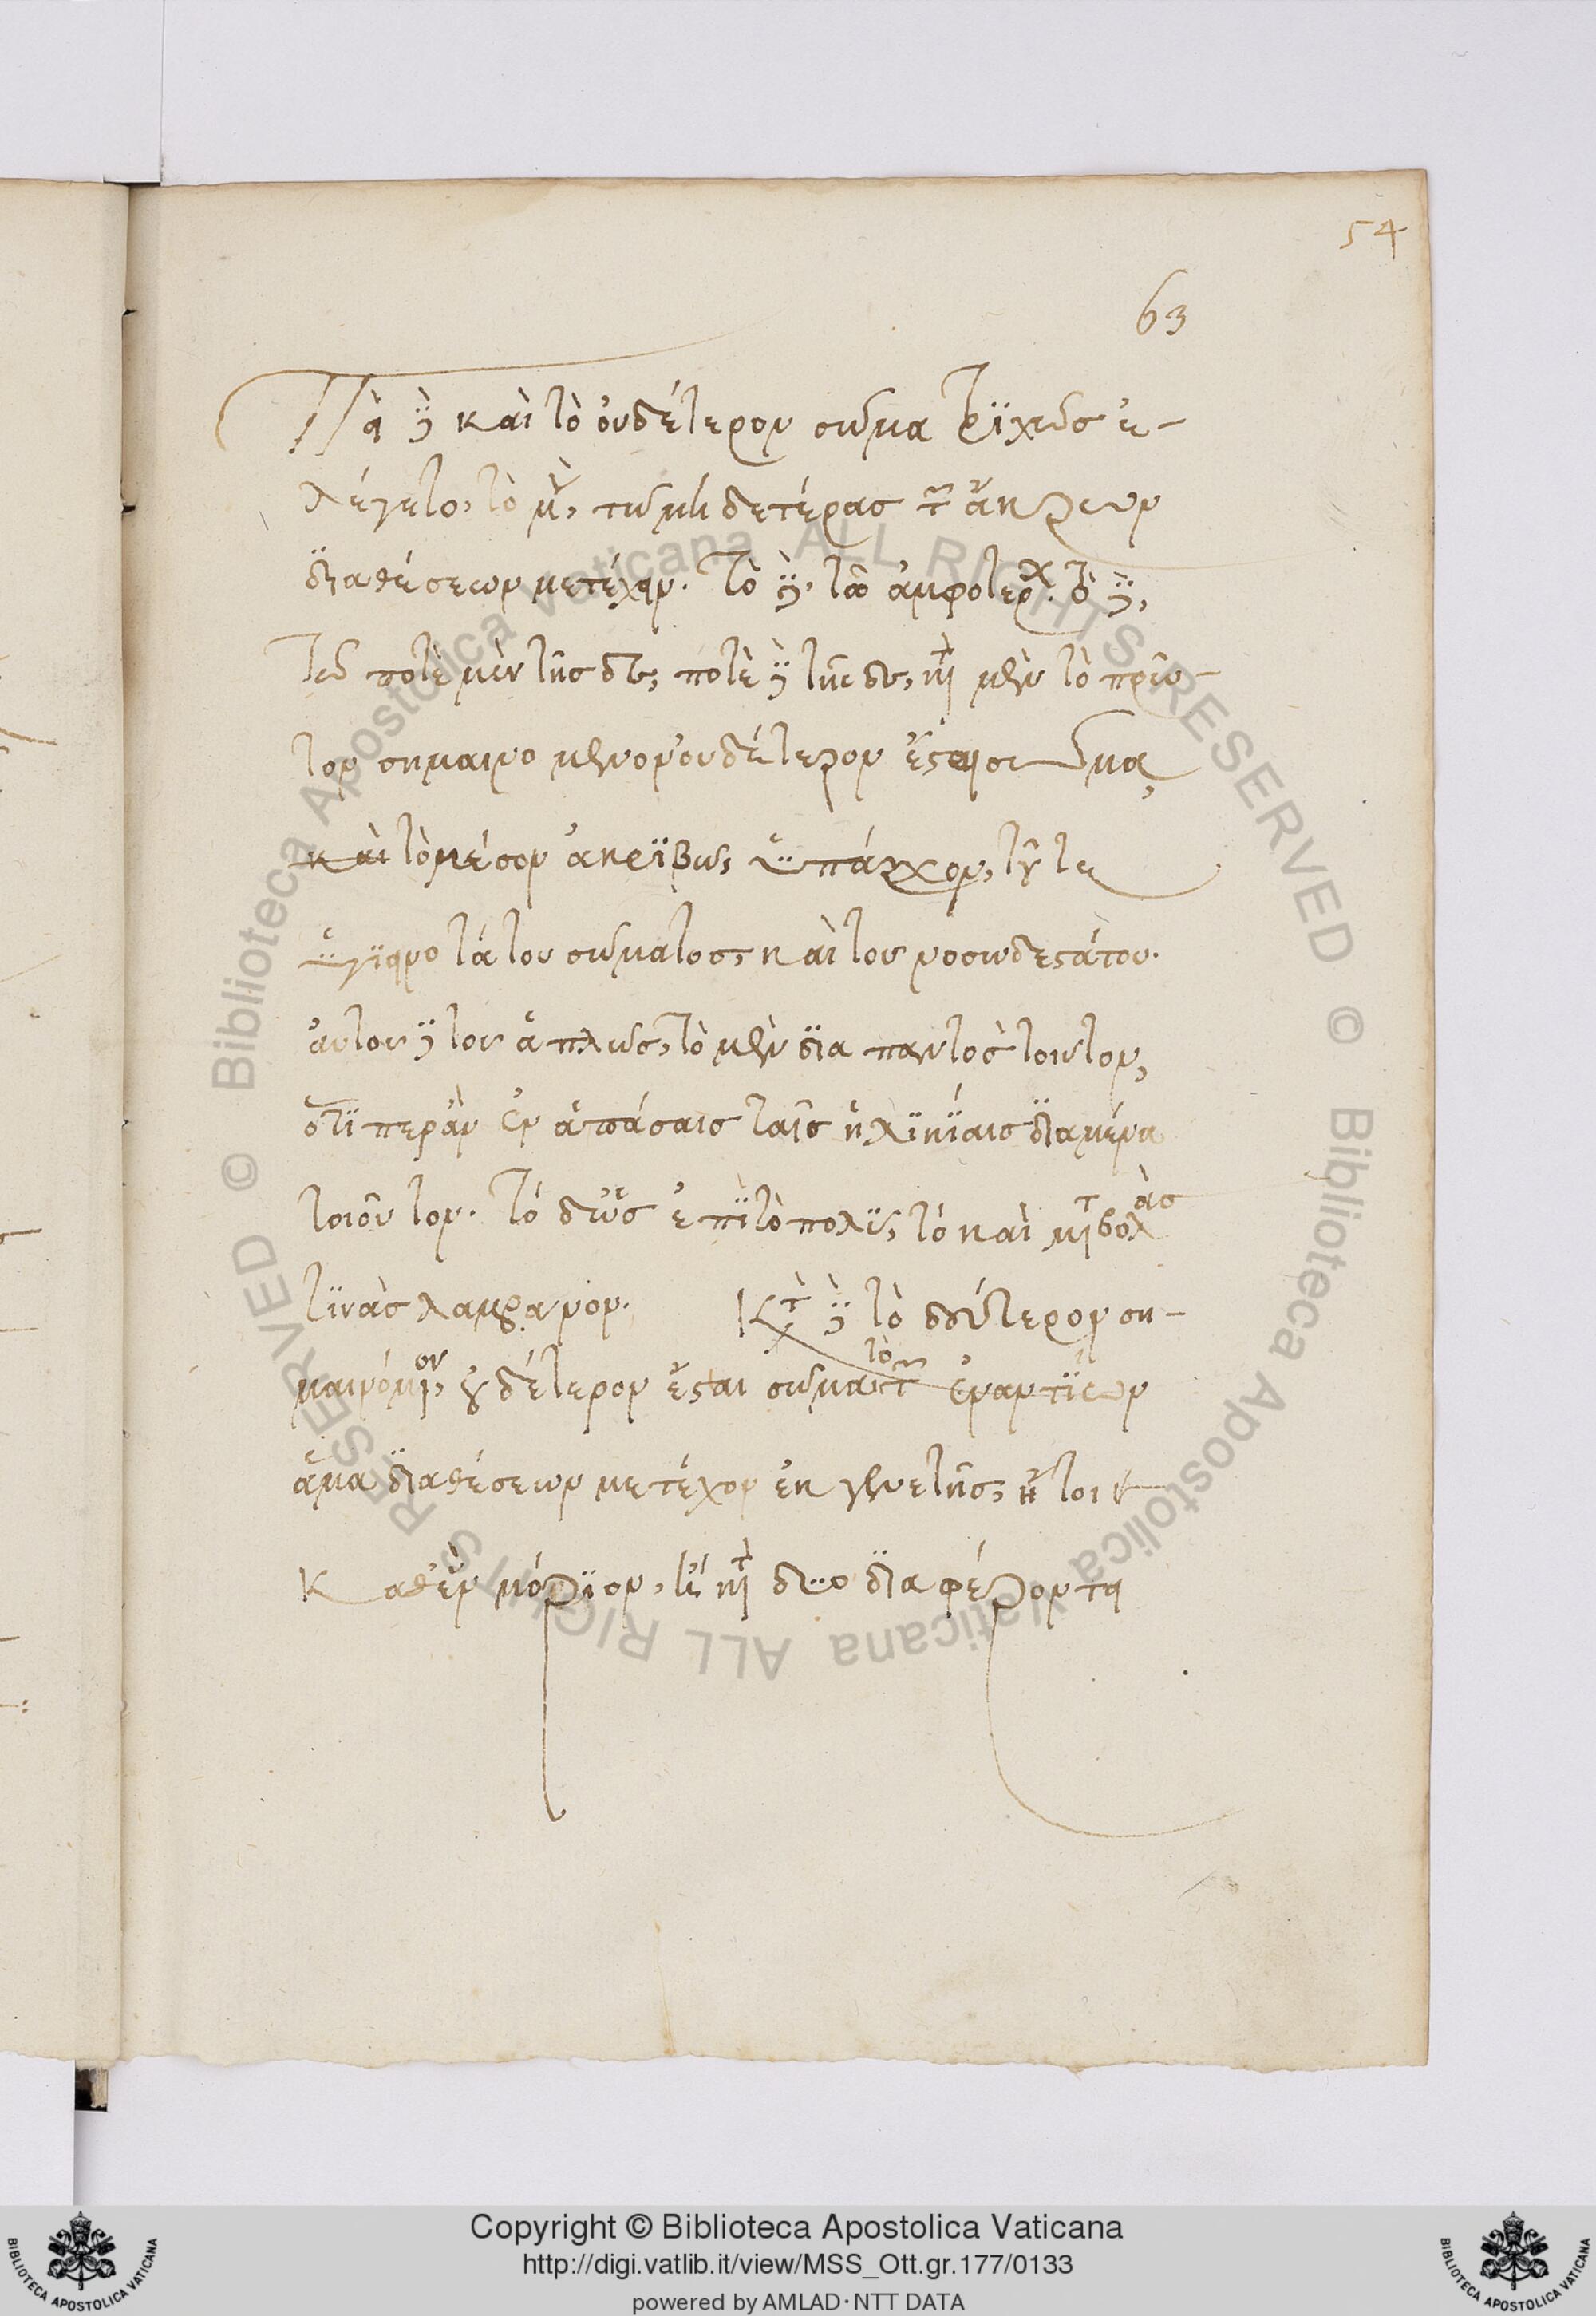 54
63
Πεὶ δὲ καὶ τὸ οὐδέτερον σῶμα τριχῶς ἐ-
λέγετο, τὸ μὲν, τῶ μηδετέρας τῶν ἄκρων
διαθέσεων μετέχειν. τὸ δὲ, τῶ ἀμφοτέρων. τὸ δὲ,
τῶ ποτὲ μὲν τῆσδε, ποτὲ δὲ τῆσδε, κατὰ μὲν τὸ πρῶ-
τον σημαινόμενον οὐδέτερον ἔσται σῶμα,
καὶ τὸ μέσον ἀκριβῶς ὑπάρχον, τοῦ τε
ὑγιεινοτάτου σώματος, καὶ τοῦ νοσωδεστάτου.
αὐτοῦ δὲ τοῦ ἁπλῶς, τὸ μὲν διὰ παντὸς τοιοῦτον,
ὅτι περ ἂν ἐν ἁπάσαις ταῖς ἡλικίαις διαμένει
τοιοῦτον. τὸ δ' ὡς ἐπὶ τὸ πολὺ, τὸ καὶ μεταβολὰς
τινὰς λαμβάνον. Κατὰ δὲ τὸ δεύτερον ση-
μαινόμενον, οὐδέτερον ἔσται σῶμα τὸ τῶν ἐναντίων
ἅμα διαθέσεων μετέχον ἐκ γενετῆς, ἤτοι
καθ' ἓν μόριον, ἢ κατὰ δύο διαφέροντα
Copyright © Biblioteca Apostolica Vaticana
http://digi.vatlib.it/view/MSS_Ott.gr.177/0133
powered by AMLAD·NTT DATA